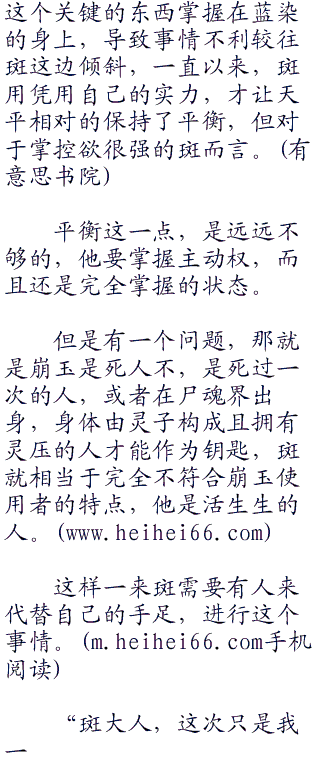 这个关键的东西掌握在蓝染
的身上，导致事情不利较往
斑这边倾斜，一直以来，斑
用凭用自己的实力，才让天
平相对的保持了平衡，但对
于掌控欲很强的斑而言。(有
意思书院)
平衡这一点，是远远不
够的，他要掌握主动权，而
且还是完全掌握的状态。
但是有一个问题，那就
是崩玉是死人不，是死过一
次的人，或者在尸魂界出
身，身体由灵子构成且拥有
灵压的人才能作为钥匙，斑
就相当于完全不符合崩玉使
用者的特点，他是活生生的
人。(www.heihei66.com)
这样一来斑需要有人来
代替自己的手足，进行这个
事情。(m.heihei66.com手机
阅读)
“斑大人，这次只是我
一